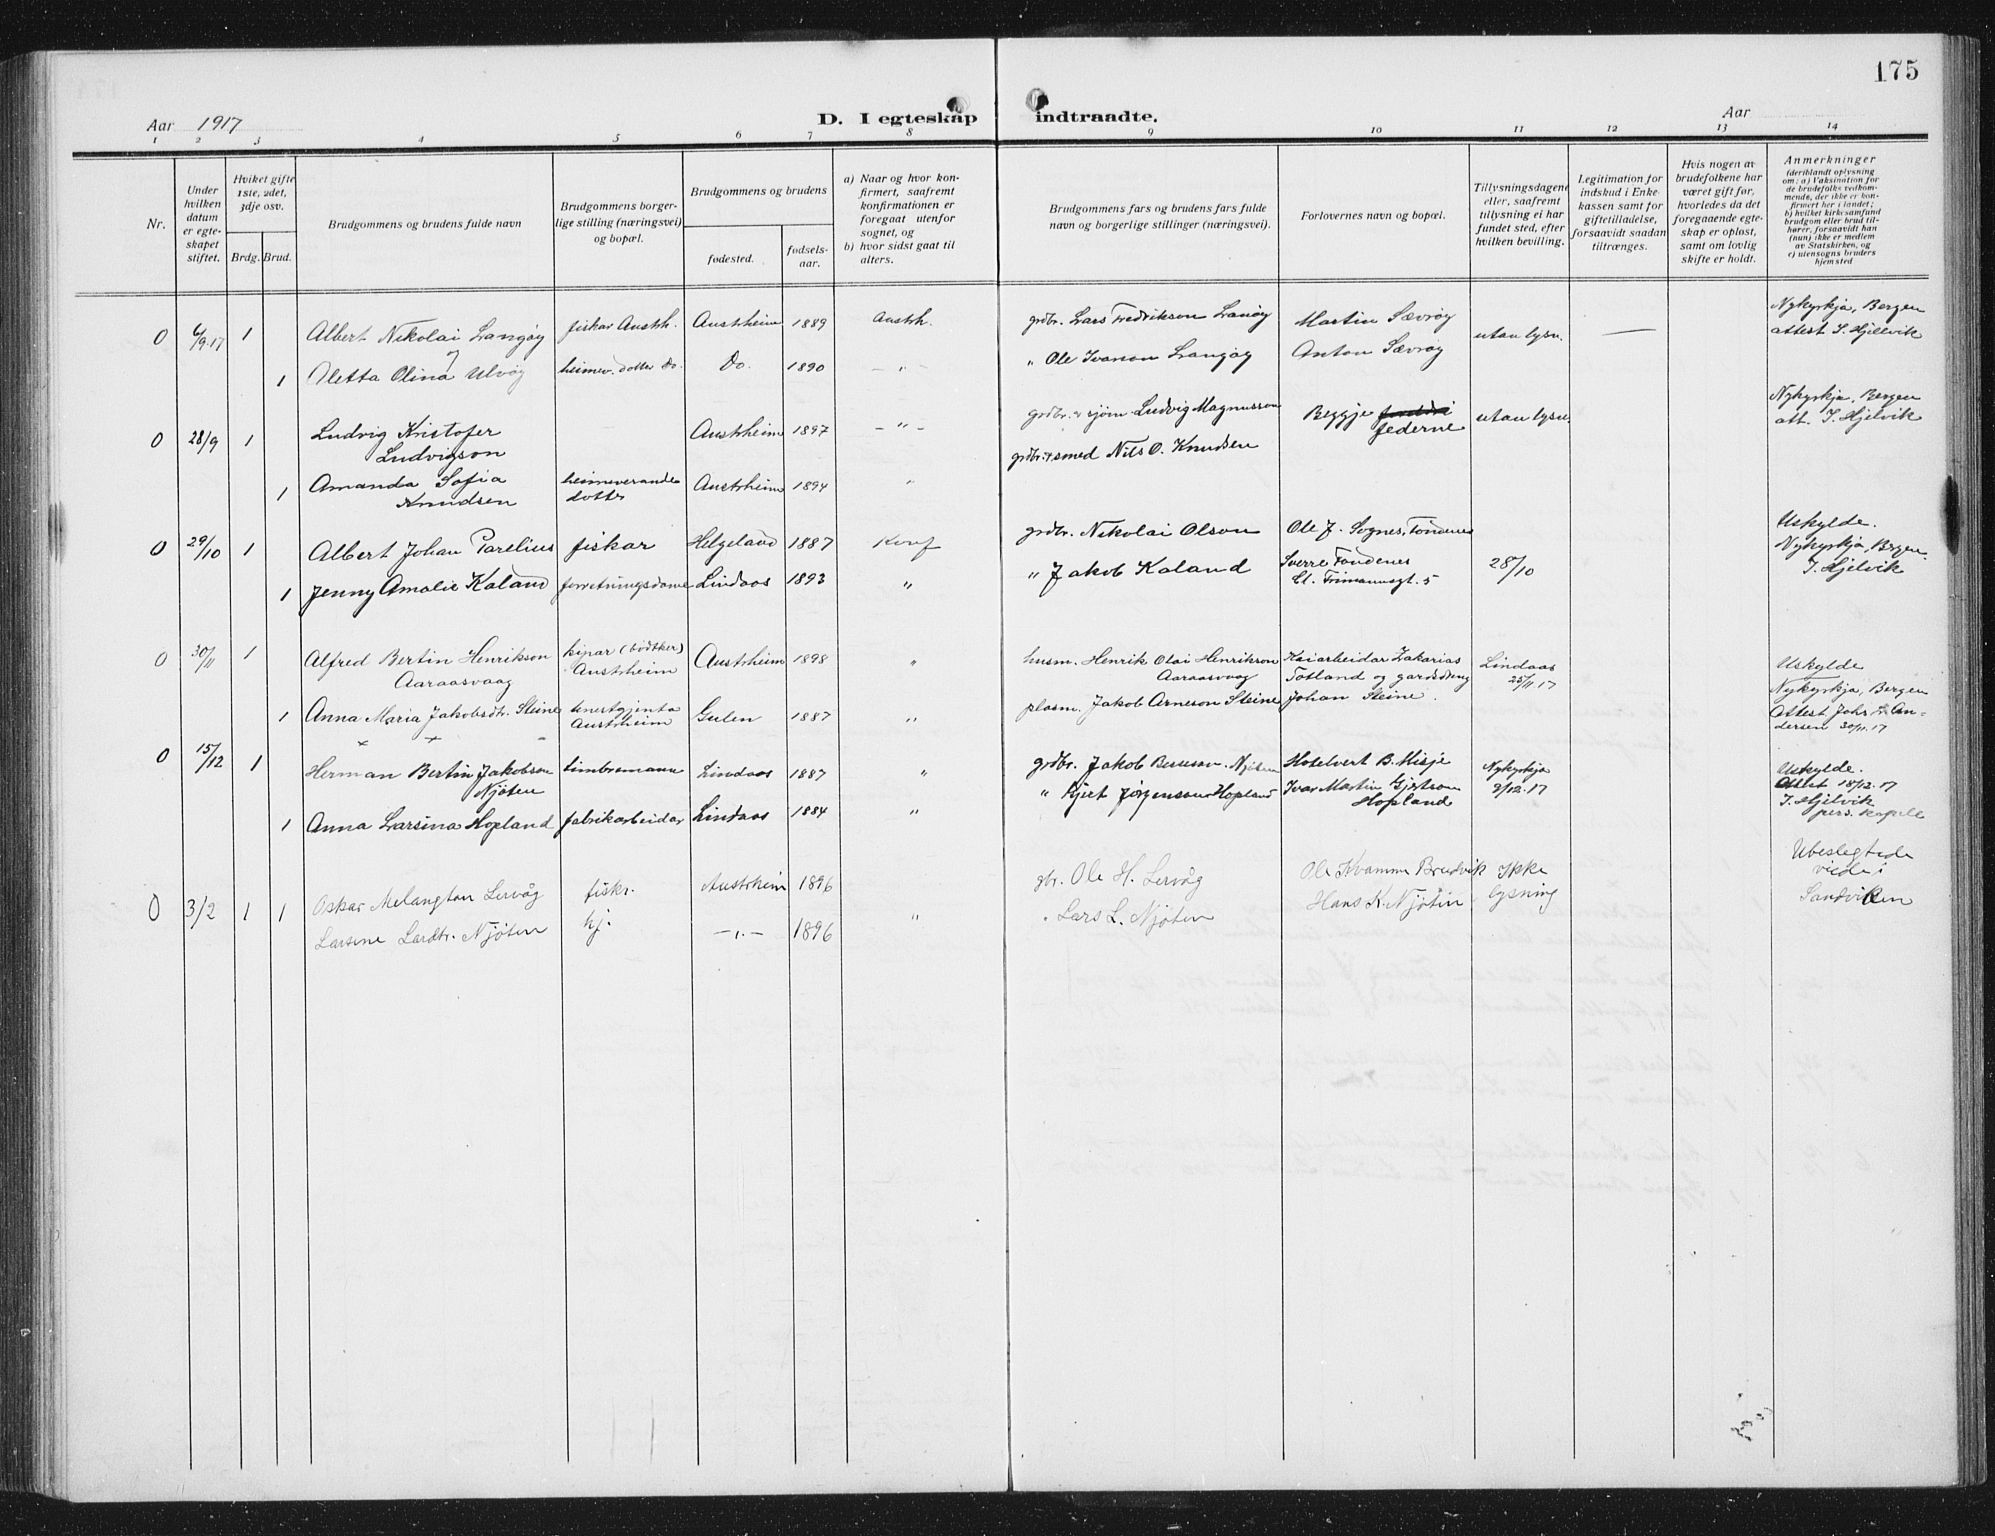 175
Aar 1917
D. I egteskap indtraadte.
Aar
1 2 3 4 5 6 7 8 9 10 11 12 13 14
Nr.
Under
hvilken
datum
er egte-
skapet
stiftet.
Hviket gifte
1ste, 2det,
3dje osv.
Brdg. Brud.
Brudgommens og brudens fulde navn
Brudgommens borger-
lige stilling (næringsvei)
og bopæl.
Brudgommens og brudens
fødested.
fødsels-
aar.
a) Naar og hvor kon-
firmert, saafremt
konfirmationen er
foregaat utenfor
sognet, og
b) hvor sidst gaat til
alters.
Brudgommens fars og brudens fars fulde
navn og borgerlige stillinger (næringsvei).
Forlovernes navn og bopæl.
Tillysningsdagene
eller, saafremt
tillysning ei har
fundet sted, efter
hvilken bevilling.
Legitimation for
indskud i Enke-
kassen samt for
giftetilladelse,
forsaavidt saadan
tiltrænges.
Hvis nogen av
brudefolkene har
været gift før,
hvorledes da det
foregaaende egte-
skap er opløst,
samt om lovlig
skifte er holdt.
Anmerkninger
(deriblandt oplysning
om: a) Vaksination for
de brudefolks vedkom-
mende, der ikke er kon-
firmert her i landet;
b) hvilket kirkesamfund
brudgom eller brud til-
hører, forsaavidt han
(hun) ikke er medlem
av Statskirken, og
c) utensogns bruders
hjemsted
0 6/9.17 1 Albert Nikolai Langøy fiskar Austrh. Austrheim 1889 Austrh. grdbr. Lars Fredrikson Lanøy Martin Sævrøy utan lysn. — Nykyrkja, Bergen
attest I. Hjellvik
og
1 Aletta Olina Ulvøy heimev. dotter do. Do. 1890 - " - " Ole Ivarson Langøy Anton Sævrøy
0 28/9 1 Ludvig Kristofer
Ludvigson Austrheim 1897 - " - grdbr. & sjøm. Ludvig Magnusson Beggje
federne utan lysn. Nykyrkja, Bergen
att. I. Hjelvik
1 Amanda Sofia
Knudsen heimeverande
dotter Austrheim 1894 " grdbr. & smed Nils O. Knudsen
0 29/10 1 Albert Johan Parelius fiskar Helgeland 1887 Konf grdbr. Nikolai Olson Ole J. Sognes, Tondenes Uskylde.
Nykyrkja, Bergen.
I. Hjelvik
1 Jenny Amalie Kaland forretningsdame Lindaas 1893 " " Jakob Kaland Sverre Tondenes 28/10
0 30/11 1 Alfred Bertin Henrikson
Aaraasvaag kipar (bødtker)
Austrheim Austrheim 1898 " husm. Henrik Olai Henrikson
Aaraasvaag Kaiarbeidar Zakarias
Totland og gardsdreng
Johan Steine. Lindaas
25/11.17 Uskylde
Nykyrkja, Bergen
Attest Johs An-
dersen 30/11.17
1 Anna Maria Jakobsdtr. Steine tenestgjenta
Austrheim Gulen 1887 " plasm. Jakob Arneson Steine
0 15/12 1 Herman Bertin Jakobson
Njøten timbremann Lindaas 1887 " grdbr. Jakob Njøten Hotelvert B. Misje Nykyrkja
9/12.17 Uskylde.
Attest 18/12.17
I. Hjelvik
pers. kapell
1 Anna Larsina Hopland fabrikarbeidar Lindaas 1884 " " Gjert Jørgenson Hopland Ivar Martin Gjertson
Hopland
0 3/2 1 1 Oskar Melangton Lervåg fiskr. Austrheim 1896 gbr. Ole H. Lervåg Ole Kvamme Brudvik Ikke
lysning Ubeslegtede
viede i
Sandviken
Larsine Larsdtr. Njøten hj. -"- 1896 " " Lars L. Njøten Hans K. Njøtin